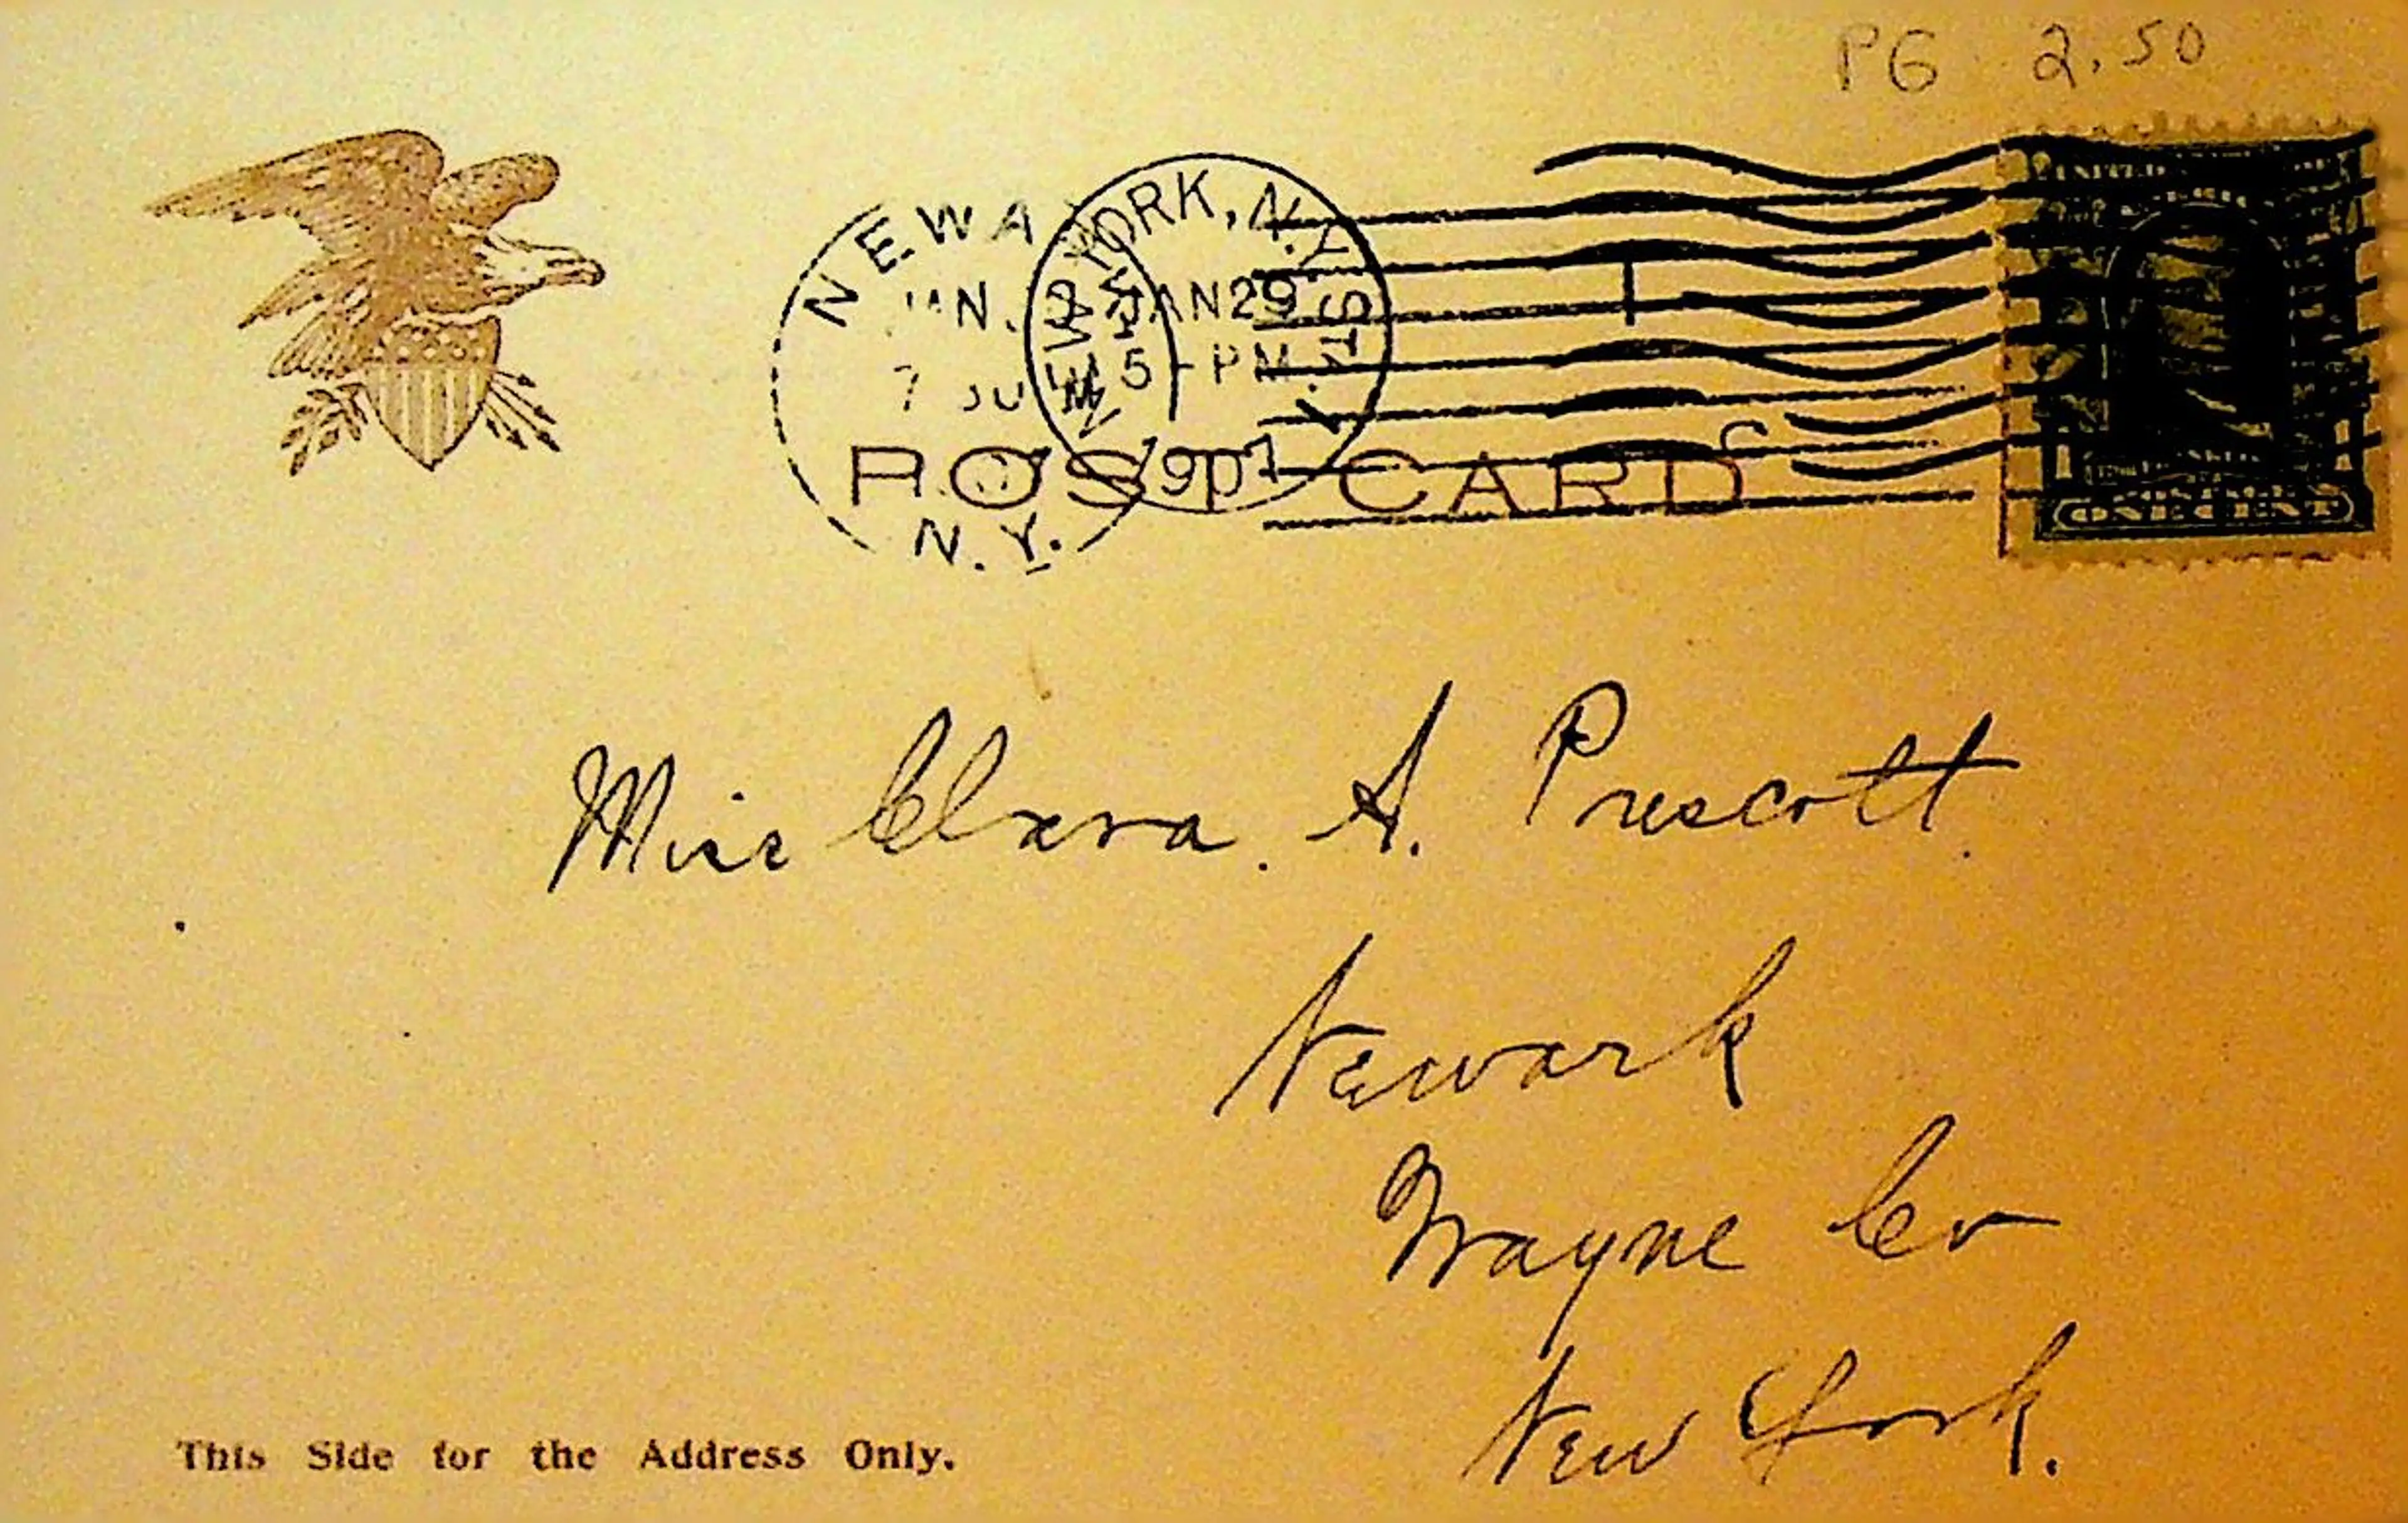 PG 2.50
NEWARK
N.Y.
NEW YORK, N.Y. STA.
JAN 29
5 - PM
1907
POST CARD
UNITED
ONE CENT
Miss Clara. A. Prescott.
Newark
Wayne Co
New York.
This Side for the Address Only.